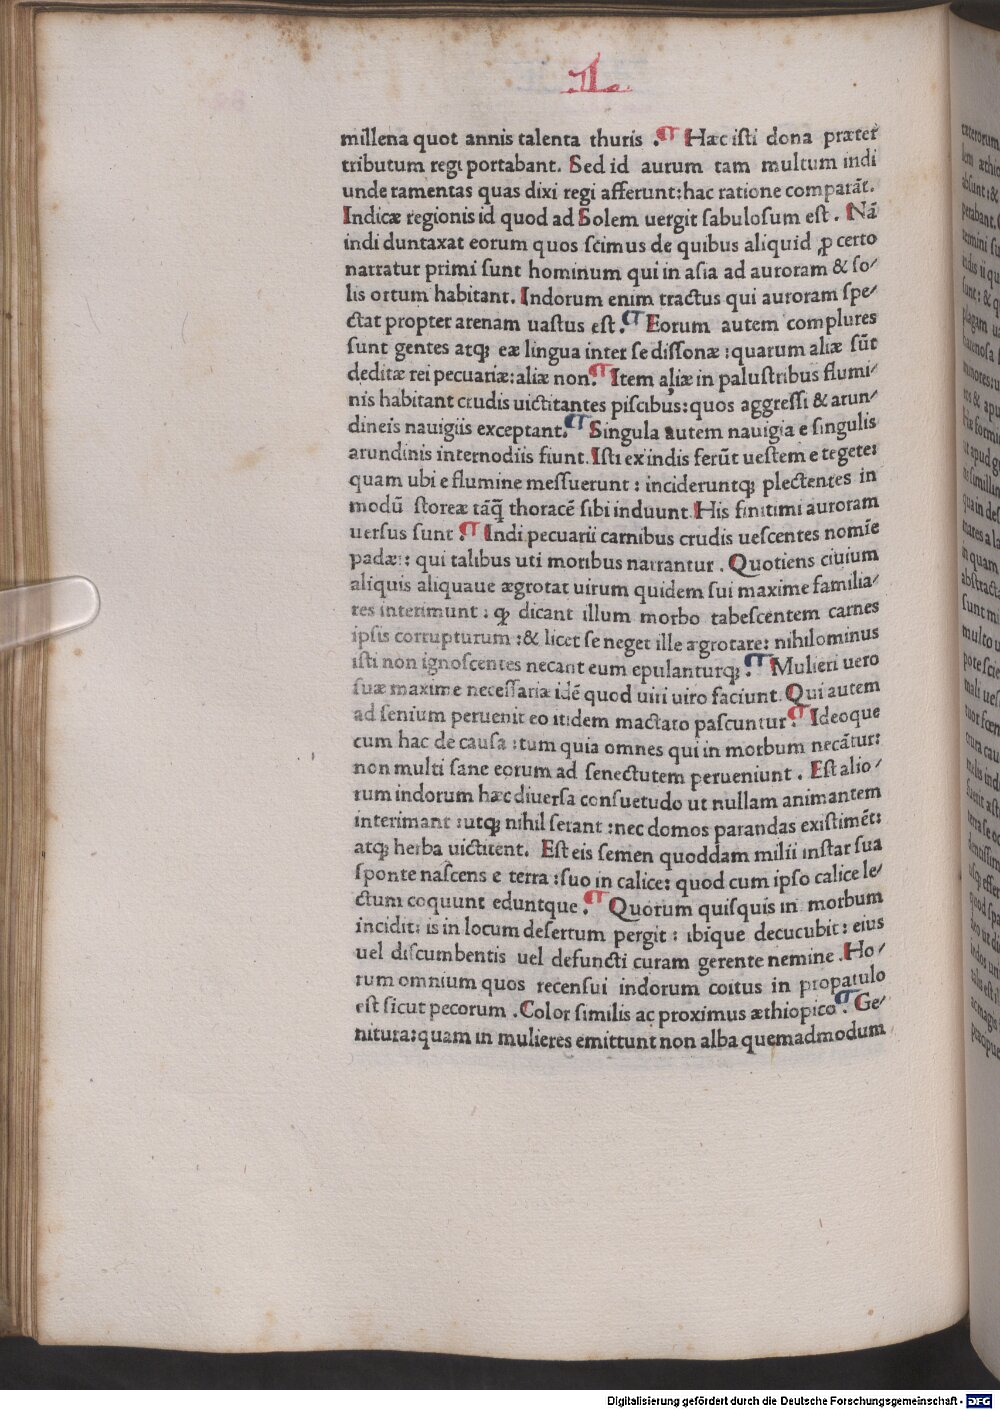 L
millena quot annis talenta thuris . ¶ Hæc iſti dona præter
tributum regi portabant. Sed id aurum tam multum indi
unde ramentas quas dixi regi afferunt: hac ratione comparāt.
Indicæ regionis id quod ad Solem uergit ſabuloſum eſt . Nā
indi duntaxat eorum quos ſcimus de quibus aliquid ꝓ certo
narratur primi ſunt hominum qui in aſia ad auroram & ſo⸗
lis ortum habitant. Indorum enim tractus qui auroram ſpe⸗
ctat propter arenam uaſtus eſt. ¶ Eorum autem complures
ſunt gentes atq; eæ lingua inter ſe diſſonæ : quarum aliæ ſūt
deditæ rei pecuariæ: aliæ non. ¶ Item aliæ in paluſtribus flumi⸗
nis habitant crudis uictitantes piſcibus: quos aggreſſi & arun⸗
dineis nauigiis exceptant. ¶ Singula autem nauigia e ſingulis
arundinis internodiis fiunt. Iſti ex indis ferūt ueſtem e tegete:
quam ubi e flumine meſſuerunt : incideruntq; plectentes in
modū ſtoreæ tāq̄ thoracē ſibi induunt. His finitimi auroram
uerſus ſunt . ¶ Indi pecuarii carnibus crudis ueſcentes nomīe
padæ : qui talibus uti moribus narrantur . Quotiens ciuium
aliquis aliquaue ægrotat uirum quidem ſui maxime familia⸗
res interimunt : ꝙ dicant illum morbo tabeſcentem carnes
ipſis corrupturum : & licet ſe neget ille ægrotare: nihilominus
iſti non ignoſcentes necant eum epulanturq; . ¶ Mulieri uero
ſuæ maxime neceſſariæ idē quod uiri uiro faciunt. Qui autem
ad ſenium peruenit eo itidem mactato paſcuntur. ¶ Ideoque
cum hac de cauſa : tum quia omnes qui in morbum necātur:
non multi ſane eorum ad ſenectutem perueniunt . Eſt alio⸗
rum indorum hæc diuerſa conſuetudo ut nullam animantem
interimant : utq; nihil ſerant : nec domos parandas exiſtimēt:
atq; herba uictitent. Eſt eis ſemen quoddam milii inſtar ſua
ſponte naſcens e terra : ſuo in calice: quod cum ipſo calice le⸗
ctum coquunt eduntque . ¶ Quorum quiſquis in morbum
incidit: is in locum deſertum pergit : ibique decucubit: eius
uel diſcumbentis uel defuncti curam gerente nemine . Ho⸗
rum omnium quos recenſui indorum coitus in propatulo
eſt ſicut pecorum . Color ſimilis ac proximus æthiopico . ¶ Ge⸗
nitura: quam in mulieres emittunt non alba quemadmodum
Digitalisierung gefördert durch die Deutsche Forschungsgemeinschaft - DFG